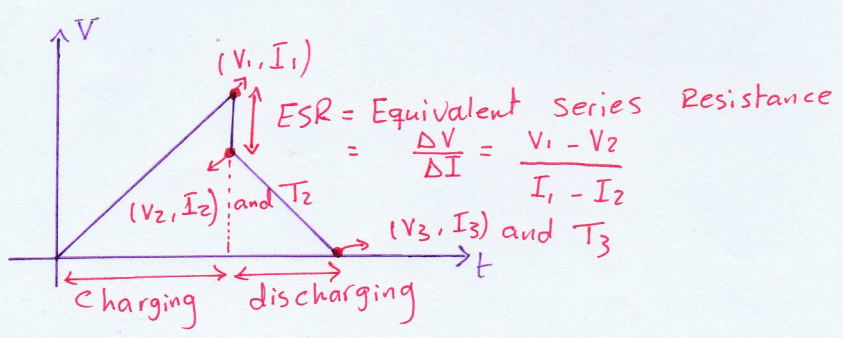 V
(V1, I1)
ESR = Equivalent Series Resistance
= ΔV / ΔI = V1 - V2 / I1 - I2
(V2, I2) and T2
(V3, I3) and T3
t
Charging discharging